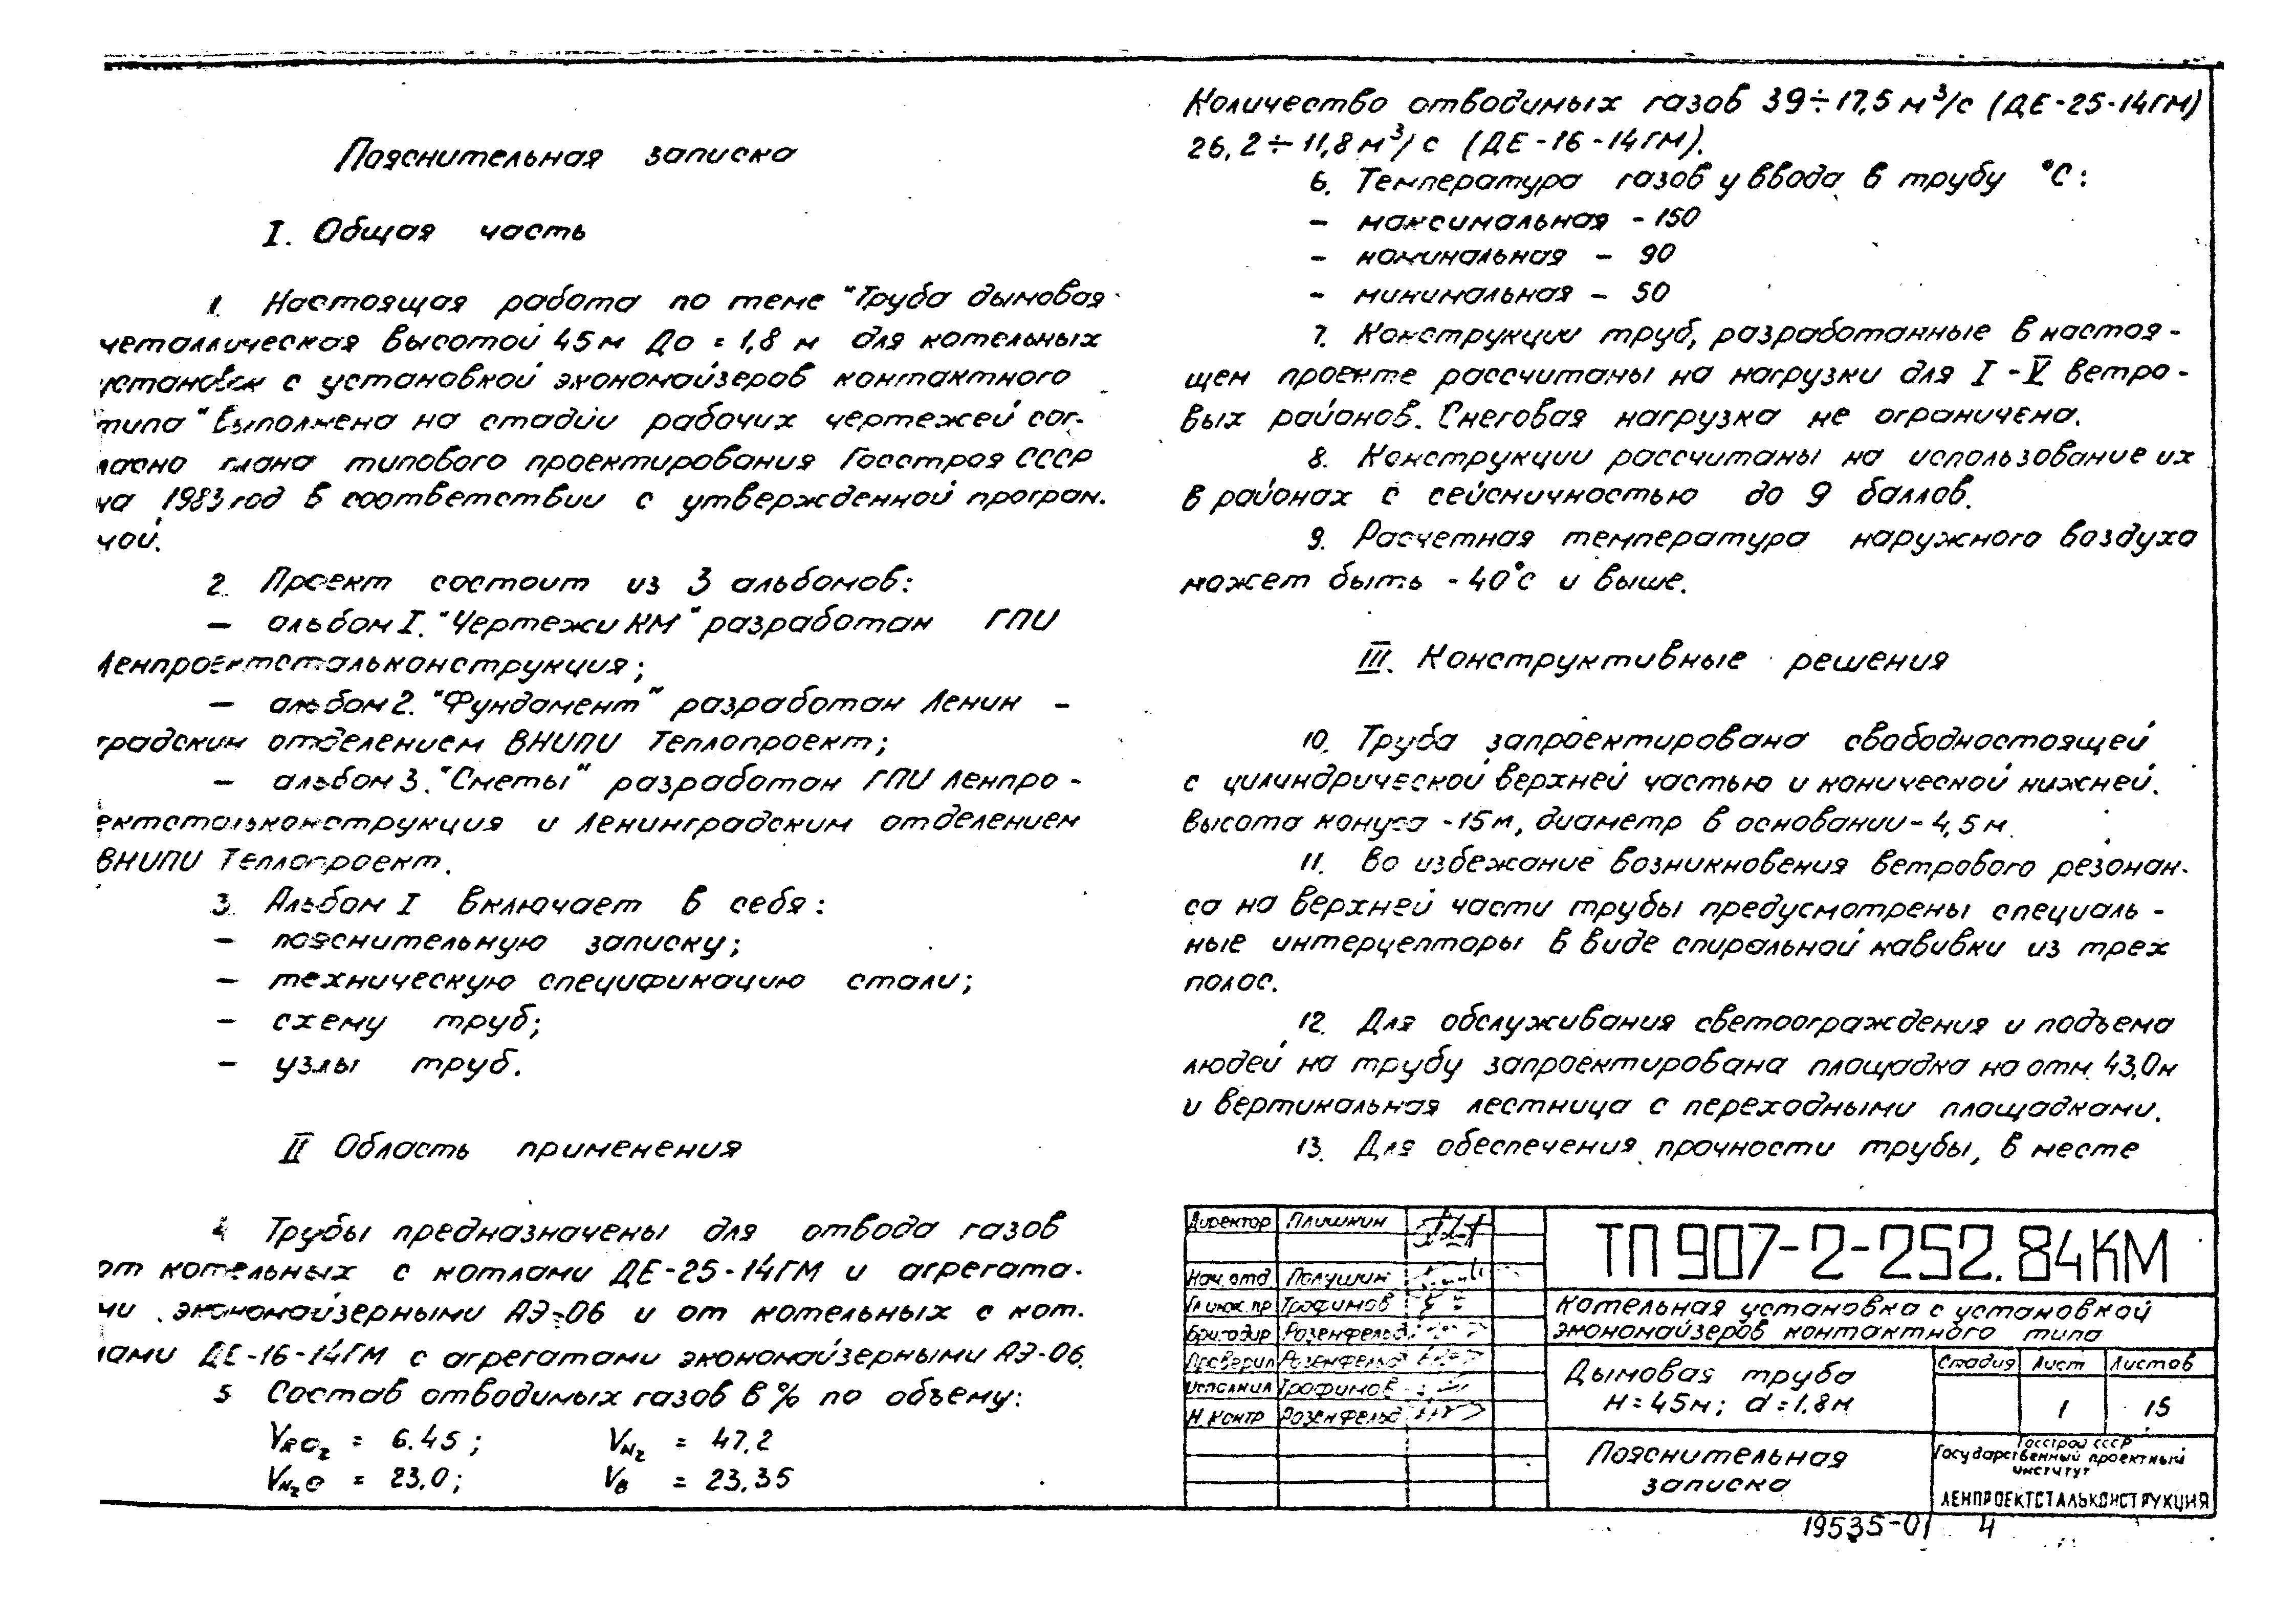 Пояснительная записка
I. Общая часть
1. Настоящая работа по теме "Труба дымовая
металлическая высотой 45м До = 1,8 м для котельных
установок с установкой экономайзеров контактного
типа" выполнена на стадии рабочих чертежей сог-
ласно плана типового проектирования Госстроя СССР
на 1983 год в соответствии с утвержденной програм.
мой.
2. Проект состоит из 3 альбомов:
— альбом I. "Чертежи КМ" разработан ГПИ
Ленпроектстальконструкция;
— альбом 2. "Фундамент" разработан Ленин -
градским отделением ВНИПИ Теплопроект;
— альбом 3. "Сметы" разработан ГПИ Ленпро -
ектстальконструкция и Ленинградским отделением
ВНИПИ Теплопроект.
3. Альбом I включает в себя:
— пояснительную записку;
— техническую спецификацию стали;
— схему труб;
— узлы труб.
II Область применения
4 Трубы предназначены для отвода газов
от котельных с котлами ДЕ-25-14ГМ и агрегата-
ми экономайзерными АЭ-06 и от котельных с кот.
лами ДЕ-16-14ГМ с агрегатами экономайзерными АЭ-06.
5 Состав отводимых газов в % по объему:
VRO2 = 6.45; VN2 = 47,2
VN2O = 23,0; Vв = 23,35
Количество отводимых газов 39÷17,5 м³/с (ДЕ-25-14ГМ)
26,2÷11,8 м³/с (ДЕ-16-14ГМ).
6. Температура газов у ввода в трубу °С:
— максимальная - 150
— номинальная – 90
— минимальная – 50
7. Конструкции труб, разработанные в настоя -
щем проекте рассчитаны на нагрузки для I - V ветро -
вых районов. Снеговая нагрузка не ограничена.
8. Конструкции рассчитаны на использование их
в районах с сейсмичностью до 9 баллов.
9. Расчетная температура наружного воздуха
может быть -40°с и выше.
III. Конструктивные решения
10. Труба запроектирована свободностоящей
с цилиндрической верхней частью и конической нижней.
Высота конуса - 15м, диаметр в основании - 4,5м.
11. Во избежание возникновения ветрового резонан-
са на верхней части трубы предусмотрены специаль -
ные интерцепторы в виде спиральной навивки из трех
полос.
12. Для обслуживания светоограждения и подъема
людей на трубу запроектирована площадка на отм. 43,0м
и вертикальная лестница с переходными площадками.
13. Для обеспечения прочности трубы, в месте
Директор Плишкин
Нач. отд. Полушин
Гл инж. пр Трофимов
Бригадир Розенфельд
Проверил Розенфельд
Исполнил Трофимов
Н. контр Розенфельд
ТП 907-2-252.84КМ
Котельная установка с установкой
экономайзеров контактного типа
Дымовая труба
Н=45м; d=1,8м
Стадия Лист Листов
1 15
Пояснительная
записка
Госстрой СССР
Государственный проектный
институт
ЛЕНПРОЕКТСТАЛЬКОНСТРУКЦИЯ
19535-01 4